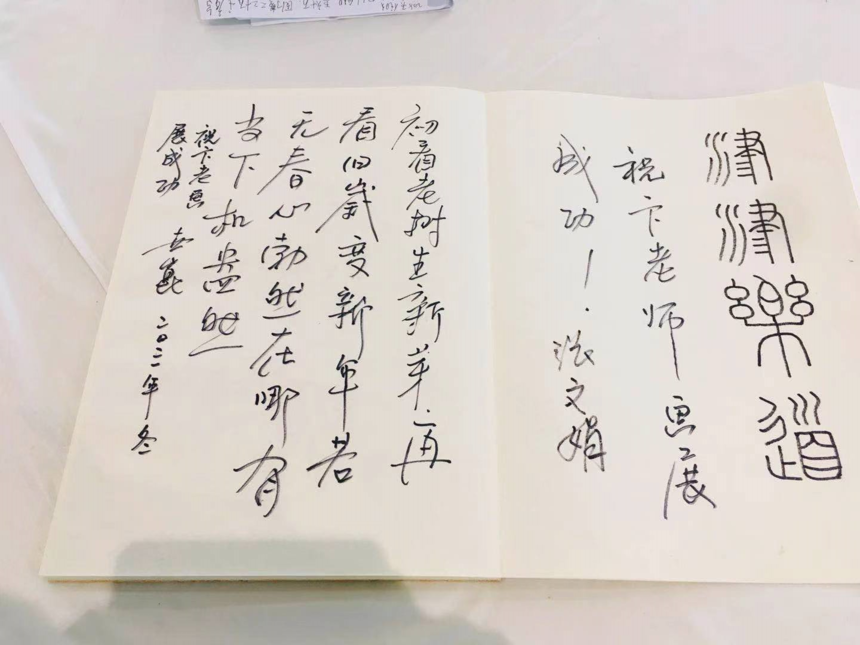 津津樂道
祝卞老师画展
成功！张文娟
初看老树生新芽，再
看旧歲变新年若
无春心勃然在哪有
当下机盎然
祝卞老画
展成功
二〇二一年冬